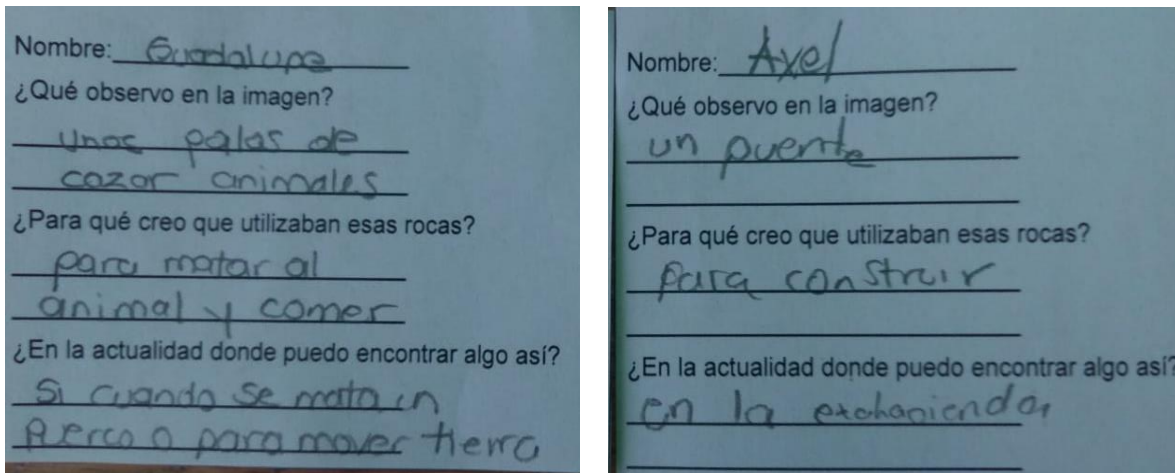 Nombre: Guadalupe
¿Qué observo en la imagen?
Unas palas de
cazar animales
¿Para qué creo que utilizaban esas rocas?
para matar al
animal y comer
¿En la actualidad donde puedo encontrar algo así?
Si cuando se mata un
puerco o para mover tierra
Nombre: Axel
¿Qué observo en la imagen?
un puente
¿Para qué creo que utilizaban esas rocas?
para construir
¿En la actualidad donde puedo encontrar algo así?
en la exhacienda